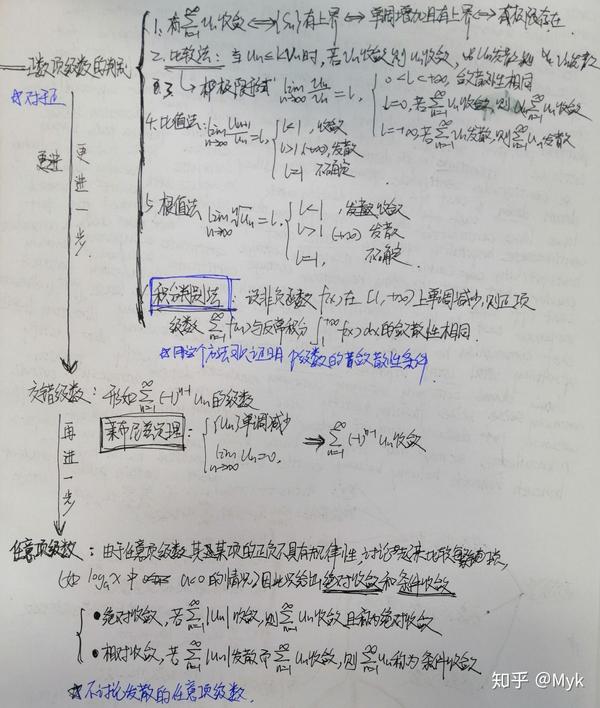 1. 有∑_{n=1}^{∞} Un收敛 ⟺ {Sn}有上界 ⟺ 单调增加且有上界 ⟺ 有极限存在.
正数项级数的判别
2. 比较法: 当 Un ≤ kVn时, 若Vn收敛则Un收敛,
3 → 极限形式 lim_{n→∞} Un/Vn = l, { 0<l<+∞, 敛散性相同
l=0, 若∑_{n=1}^{∞} Vn收敛, 则∑_{n=1}^{∞} Un收敛
l=+∞, 若∑_{n=1}^{∞} Vn发散, 则∑_{n=1}^{∞} Un发散
4. 比值法: lim_{n→∞} Un+1/Un = l, { l<1, 收敛
l>1 (+∞), 发散
l=1 不确定
更进一步
5. 根值法 lim_{n→∞} ⁿ√Un = l, { l<1, 收敛
l>1 (+∞) 发散
l=1, 不确定.
积分判别法: 设非负函数 f(x)在 [1,+∞)上单调减少, 则正项
级数 ∑_{n=1}^{∞} f(n)与反常积分 ∫_1^{+∞} f(x)dx的敛散性相同.
☆用这个方法可以证明 P级数的敛散性条件
交错级数: 形如∑_{n=1}^{∞} (-1)^{n-1} Un的级数
莱布尼兹定理: { {Un}单调减少
lim_{n→∞} Un=0,
⟹ ∑_{n=1}^{∞} (-1)^{n-1} Un收敛
再进一步
任意项级数: 由于任意项级数其某项的正负不具有规律性, 讨论起来比较
(如 logₐx 中 a<0 的情况) 因此只给出绝对收敛和条件收敛
•绝对收敛, 若∑_{n=1}^{∞}|Un|收敛, 则∑_{n=1}^{∞} Un收敛且称为绝对收敛
•相对收敛, 若∑_{n=1}^{∞}|Un|发散而∑_{n=1}^{∞} Un收敛, 则∑_{n=1}^{∞} Un称为条件收敛
☆不讨论发散的任意项级数.
知乎 @Myk